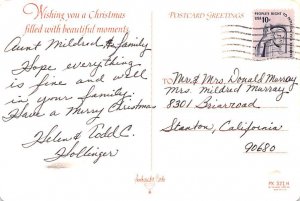 Wishing you a Christmas
filled with beautiful moments
Aunt Mildred & family
Hope everything
is fine and well
in your family.
Have a Merry Christmas
Helen & Todd C.
Hollinger
POSTCARD GREETINGS
PEOPLE'S RIGHT TO
USA 10c
TO
Mr & Mrs. Donald Murray
Mrs. Mildred Murray
8301 Briarroad
Stanton, California
90680